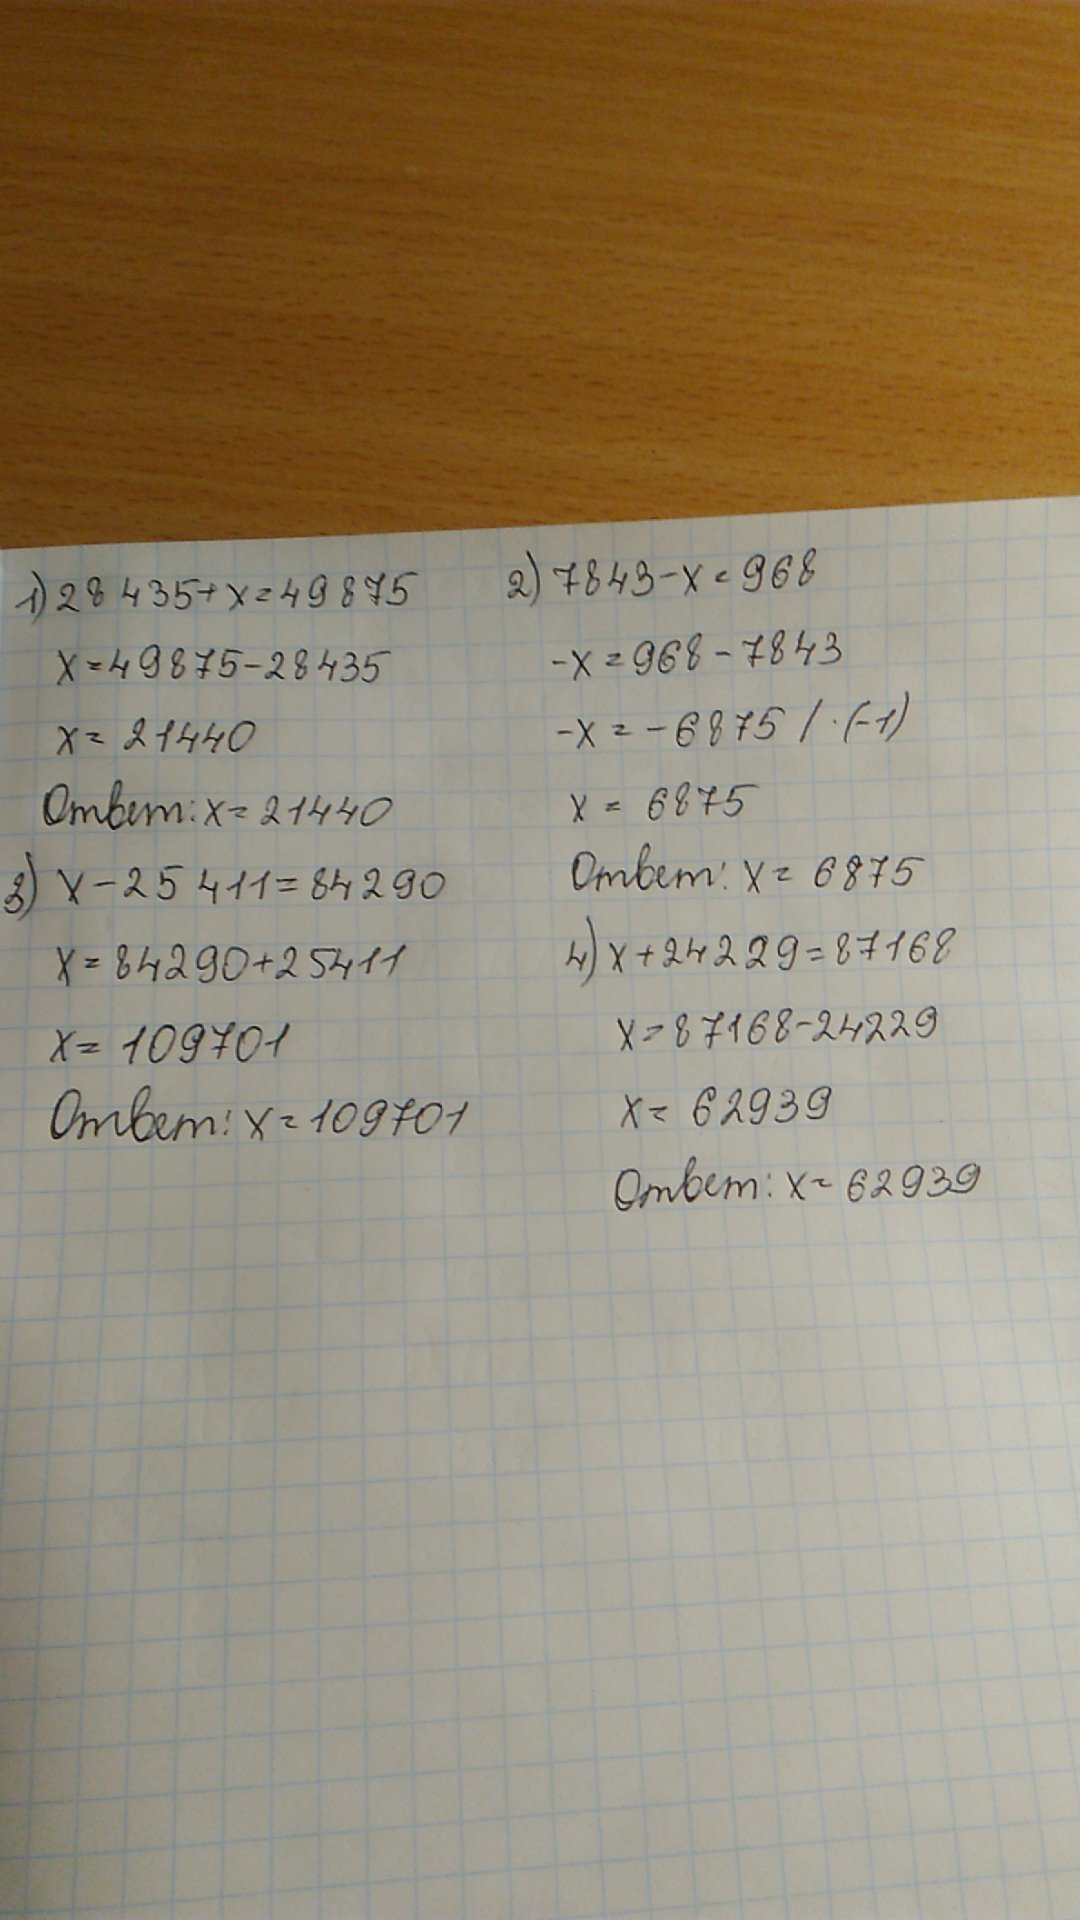 1) 28 435+x=49875
x=49875-28435
x= 21440
Ответ: x=21440
2) 7843-x=968
-x=968-7843
-x=-6875 /·(-1)
x= 6875
Ответ: x= 6875
3) x-25 411=84290
x=84290+25411
x= 109701
Ответ: x=109701
4) x+24229=87168
x=87168-24229
x= 62939
Ответ: x= 62939